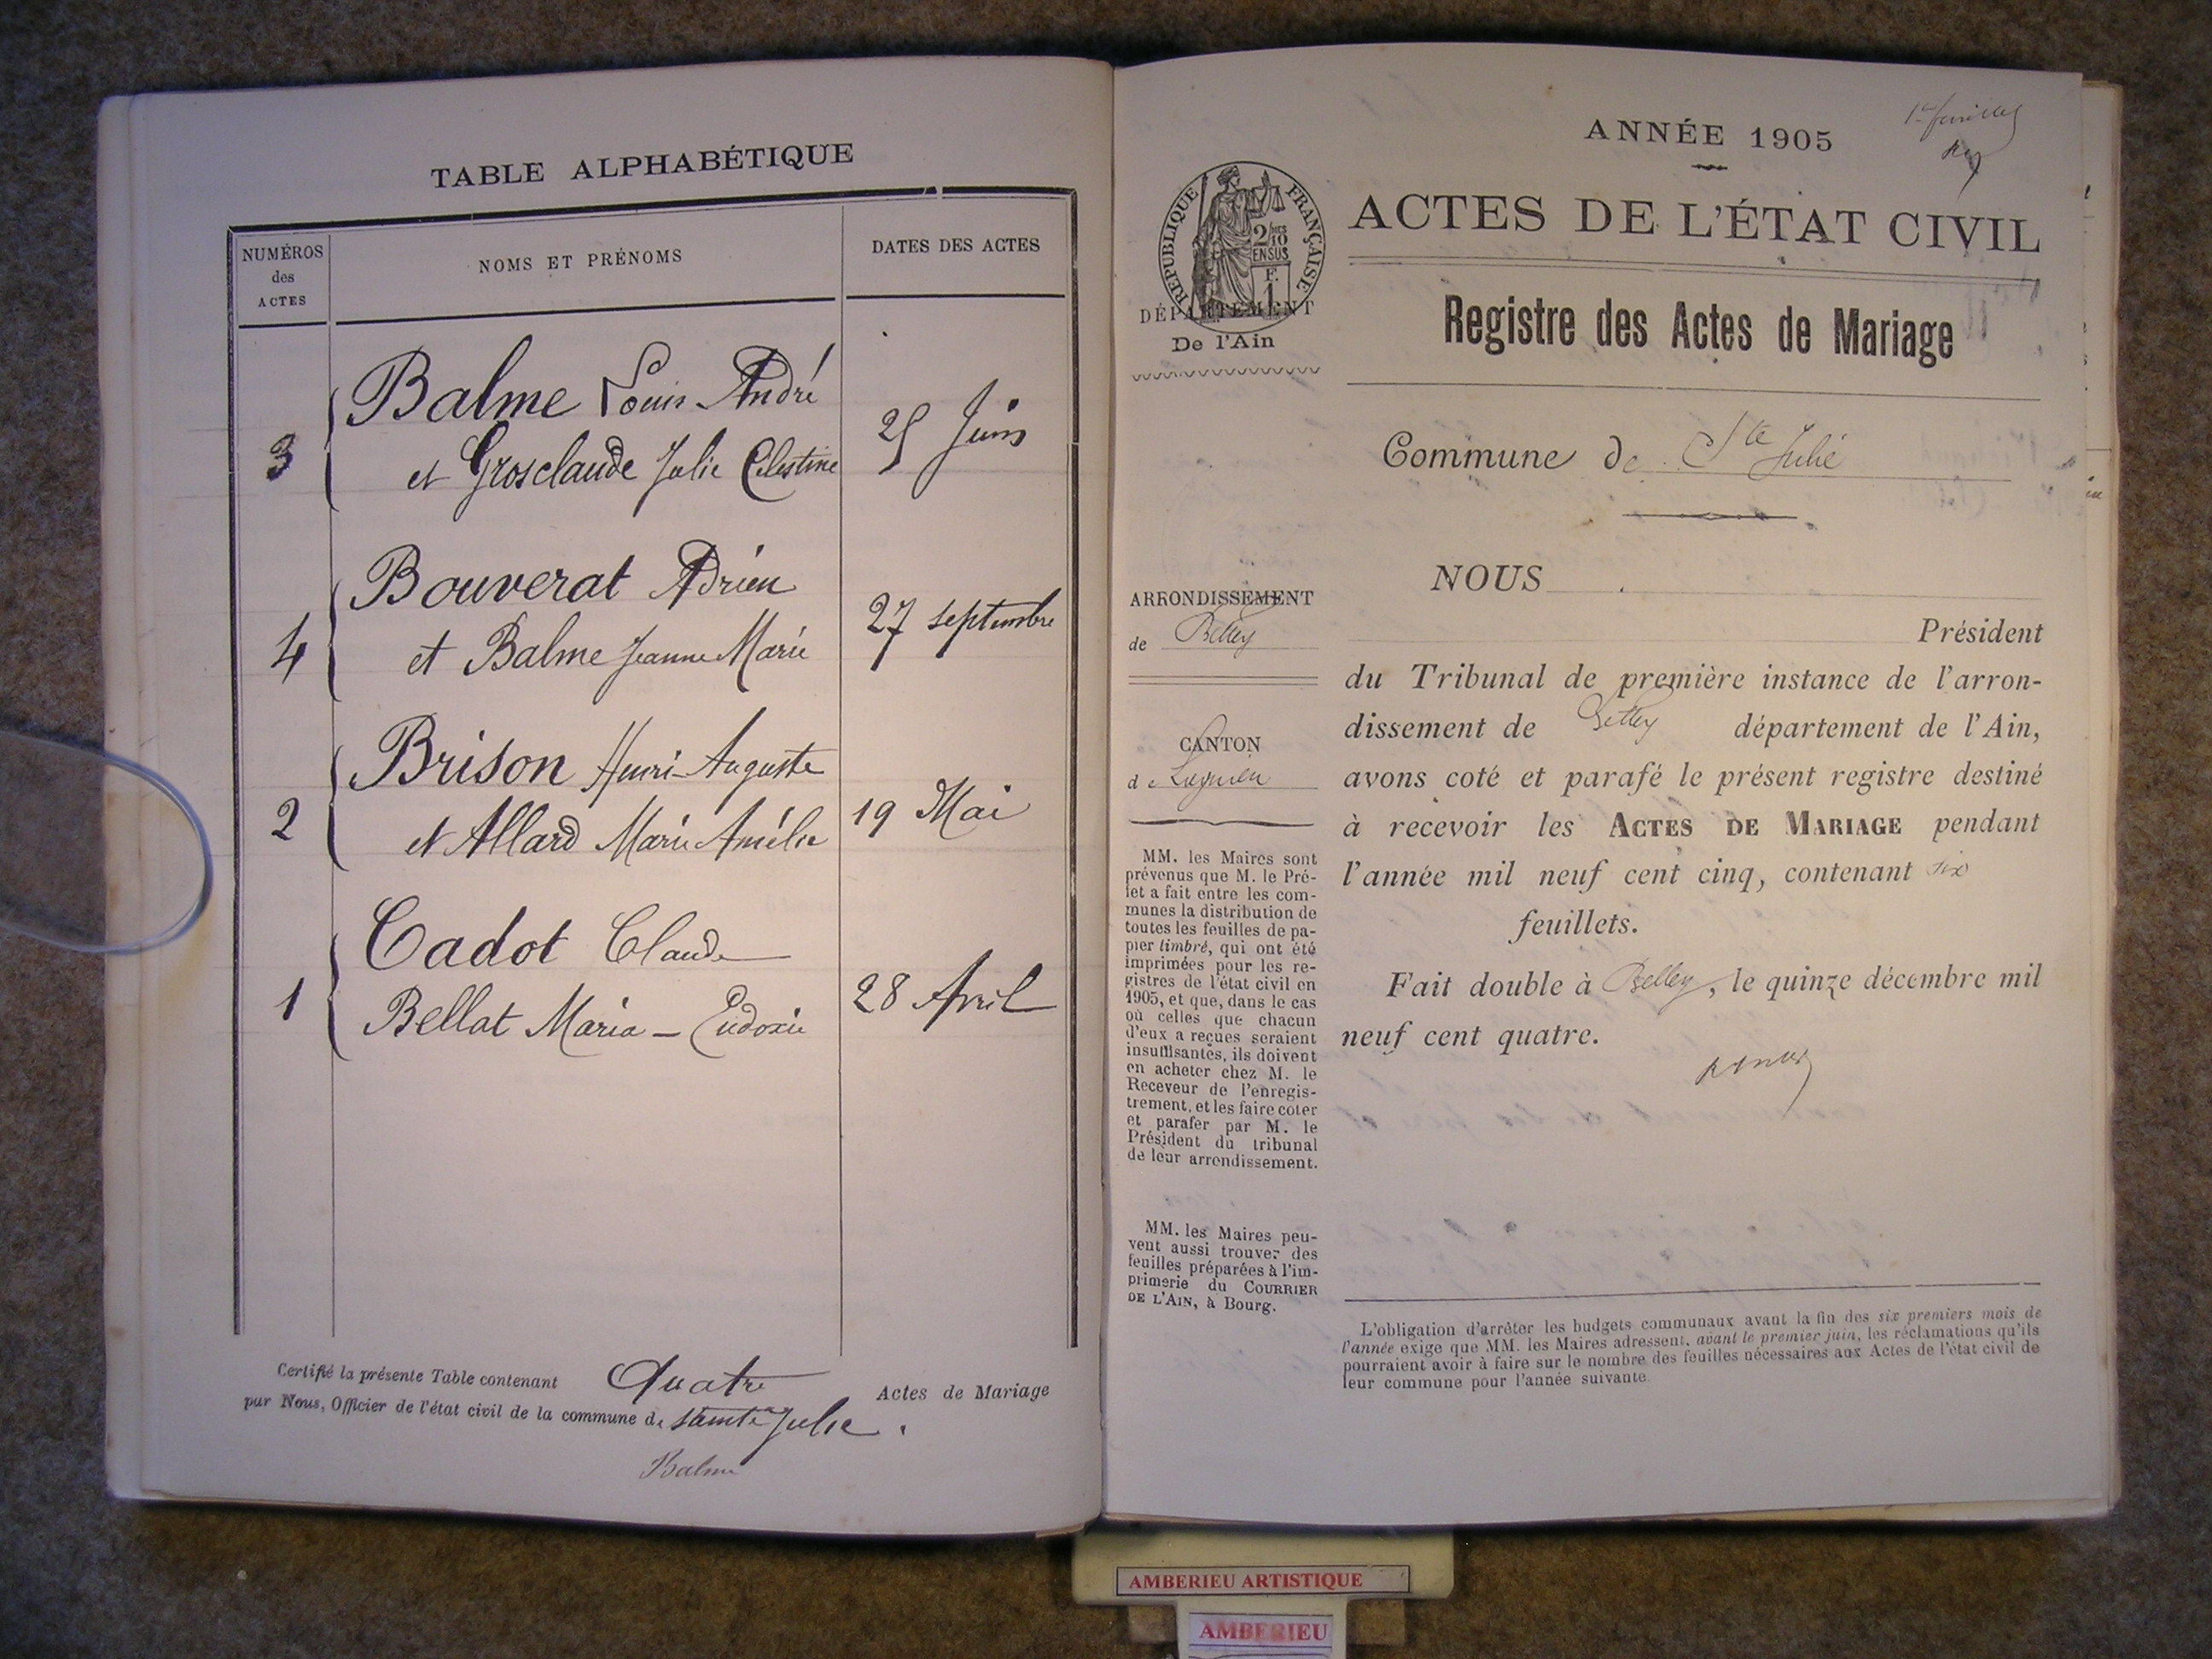 TABLE ALPHABÉTIQUE
NUMÉROS
des
ACTES
NOMS ET PRÉNOMS
DATES DES ACTES
Balme Louis André
3
et Grosclaude Julie Célestine
25 Juin
Bouverat Adrien
4
et Balme Jeanne Marie
27 septembre
Brison Henri-Auguste
2
et Allard Marie Amélie
19 Mai
Cadot Claude
1
Bellat Maria - Eudoxie
28 Avril
Certifié la présente Table contenant Quatre Actes de Mariage
par Nous, Officier de l'état civil de la commune de sainte Julie.
Balme
1er feuillet
ANNÉE 1905
RÉPUBLIQUE FRANÇAISE
2/10
EN SUS
F.
1
ACTES DE L'ÉTAT CIVIL
DÉPARTEMENT
De l'Ain
Registre des Actes de Mariage
Commune de Ste Julie
ARRONDISSEMENT
de Belley
CANTON
de Lagnieu
MM. les Maires sont
prévenus que M. le Pré-
fet a fait entre les com-
munes la distribution de
toutes les feuilles de pa-
pier timbré, qui ont été
imprimées pour les re-
gistres de l'état civil en
1905, et que, dans le cas
où celles que chacun
d'eux a reçues seraient
insuffisantes, ils doivent
en acheter chez M. le
Receveur de l'enregis-
trement, et les faire coter
et parafer par M. le
Président du tribunal
de leur arrondissement.
MM. les Maires peu-
vent aussi trouver des
feuilles préparées à l'im-
primerie du COURRIER
DE L'AIN, à Bourg.
NOUS
Président
du Tribunal de première instance de l'arron-
dissement de Belley département de l'Ain,
avons coté et parafé le présent registre destiné
à recevoir les ACTES DE MARIAGE pendant
l'année mil neuf cent cinq, contenant six
feuillets.
Fait double à Belley, le quinze décembre mil
neuf cent quatre.
L'obligation d'arrêter les budgets communaux avant la fin des six premiers mois de
l'année exige que MM. les Maires adressent, avant le premier juin, les réclamations qu'ils
pourraient avoir à faire sur le nombre des feuilles nécessaires aux Actes de l'état civil de
leur commune pour l'année suivante.
AMBERIEU ARTISTIQUE
AMBERIEU